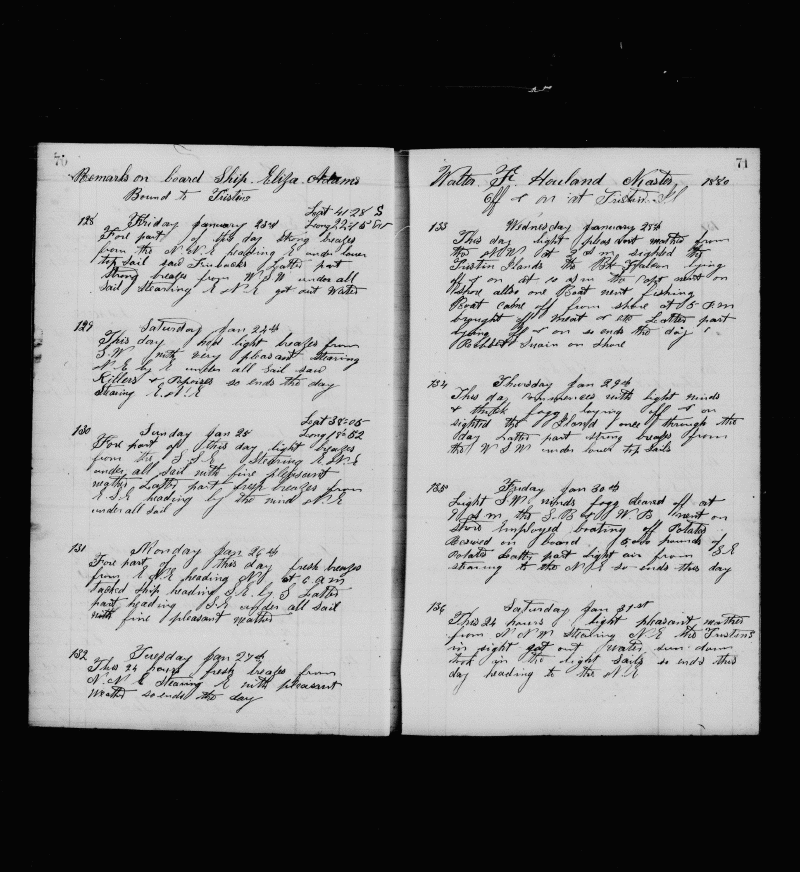 70
Remarks on board Ship Eliza Adams
Bound to Tristens
Lat 41-28 S
128 Friday January 23rd Long 22-15 W
Fore part of this day strong breazes
from the N.N.E heading E under lower
top sail saw Finbacks Latter part
strong breaze from W S W under all
Sail Stearing E N E got out Water
129 Saturday Jan 24th
This day has light breazes from
S.W. with very pleasant Stearing
N.E by E under all sail saw
Killers & Porpoises so ends the day
Stearing E.N.E
Lat 38-05
130 Sunday Jan 25 Long 18-52
Fore part of this day light breazes
from the S.S.E Stearing E.N.E
under all sail with fine pleasant
weather Latter part fresh breazes from
E.S.E heading by the wind N.E
under all sail
131 Monday Jan 26th
Fore part of this day fresh breazes
from E.N.E heading N. at 6 a m
tacked ship heading S.E. by S Latter
part heading S.E under all sail
with fine pleasant weather
132 Tuesday Jan 27th
This 24 hours fresh breazes from
N.N.E Stearing E with pleasant
Weather so ends the day
71
Walter F. Howland Master 1880
Off & on at Tristen Isl
133 Wednesday January 28th
This day light pleasant weather from
the N.W. at 2 a m sighted the
Tristen Islands the Bk Falcon lying
off & on at 10 a m the Capt went on
shore allso one Boat went fishing
Boat came off from shore at 5 P.m
brought off meat &c Latter part
lying off & on so ends the day
Robbert Swain on shore
134 Thursday Jan 29th
This day commences with light winds
& thick fogg laying off & on
sighted the Island once through the
day Latter part strong breaze from
the W S W under lower top sails
135 Friday Jan 30th
Light S.W. winds fogg cleared off at
9 a m the S.B & W.B went on
shore Employed boating off Potatoes
Received on board 5,000 pounds of
Potatoes Latter part light air from S E
stearing to the N.E so ends this day
136 Saturday Jan 31st
This 24 hours light pleasant weather
from N N W Stearing N.E the Tristens
in sight got out water sun down
took in the light sails so ends this
day heading to the N.E